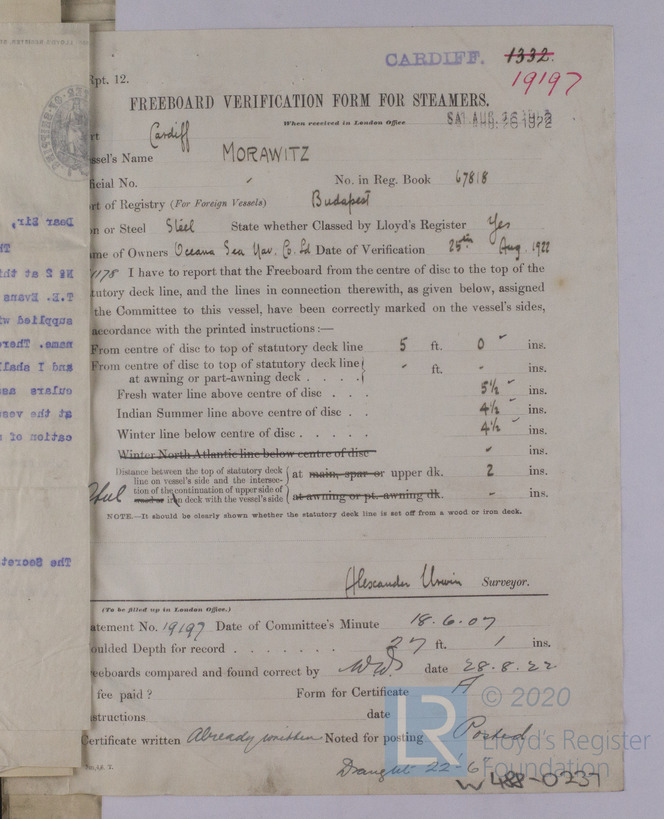 CARDIFF. 1332.
19197
Rpt. 12.
FREEBOARD VERIFICATION FORM FOR STEAMERS.
When received in London Office
SAT. AUG. 26 1922
rt Cardiff
essel's Name MORAWITZ
ficial No. No. in Reg. Book 67818
rt of Registry (For Foreign Vessels) Budapest
on or Steel Steel State whether Classed by Lloyd's Register Yes
me of Owners Oceana Sea Nav. Co. Ld Date of Verification 25th Aug. 1922
I have to report that the Freeboard from the centre of disc to the top of the
tutory deck line, and the lines in connection therewith, as given below, assigned
the Committee to this vessel, have been correctly marked on the vessel's sides,
accordance with the printed instructions:—
From centre of disc to top of statutory deck line 5 ft. 0 ins.
From centre of disc to top of statutory deck line
at awning or part-awning deck . . . . - ft. - ins.
Fresh water line above centre of disc . . . 5½ ins.
Indian Summer line above centre of disc . . 4½ ins.
Winter line below centre of disc . . . . . 4½ ins.
Winter North Atlantic line below centre of disc - ins.
Distance between the top of statutory deck
line on vessel's side and the intersec- at main, spar or upper dk. 2 ins.
tion of the continuation of upper side of
Steel wood or iron deck with the vessel's side at awning or pt. awning dk. - ins.
NOTE.—It should be clearly shown whether the statutory deck line is set off from a wood or iron deck.
Alexander Urwin Surveyor.
(To be filled up in London Office.)
atement No. 19197 Date of Committee's Minute 18.6.07
oulded Depth for record . . . . . . . 27 ft. 1 ins.
eeboards compared and found correct by date 28.8.22
fee paid? Form for Certificate A
structions date
Certificate written Already written Noted for posting Posted
Draught 22'-6"
W488-0237
LR
© 2020
Lloyd's Register
Foundation
Dear Sir,
T.E. Evans
supplied w
name. There
and I shall
culars as
at the vess
cation of
The Secret